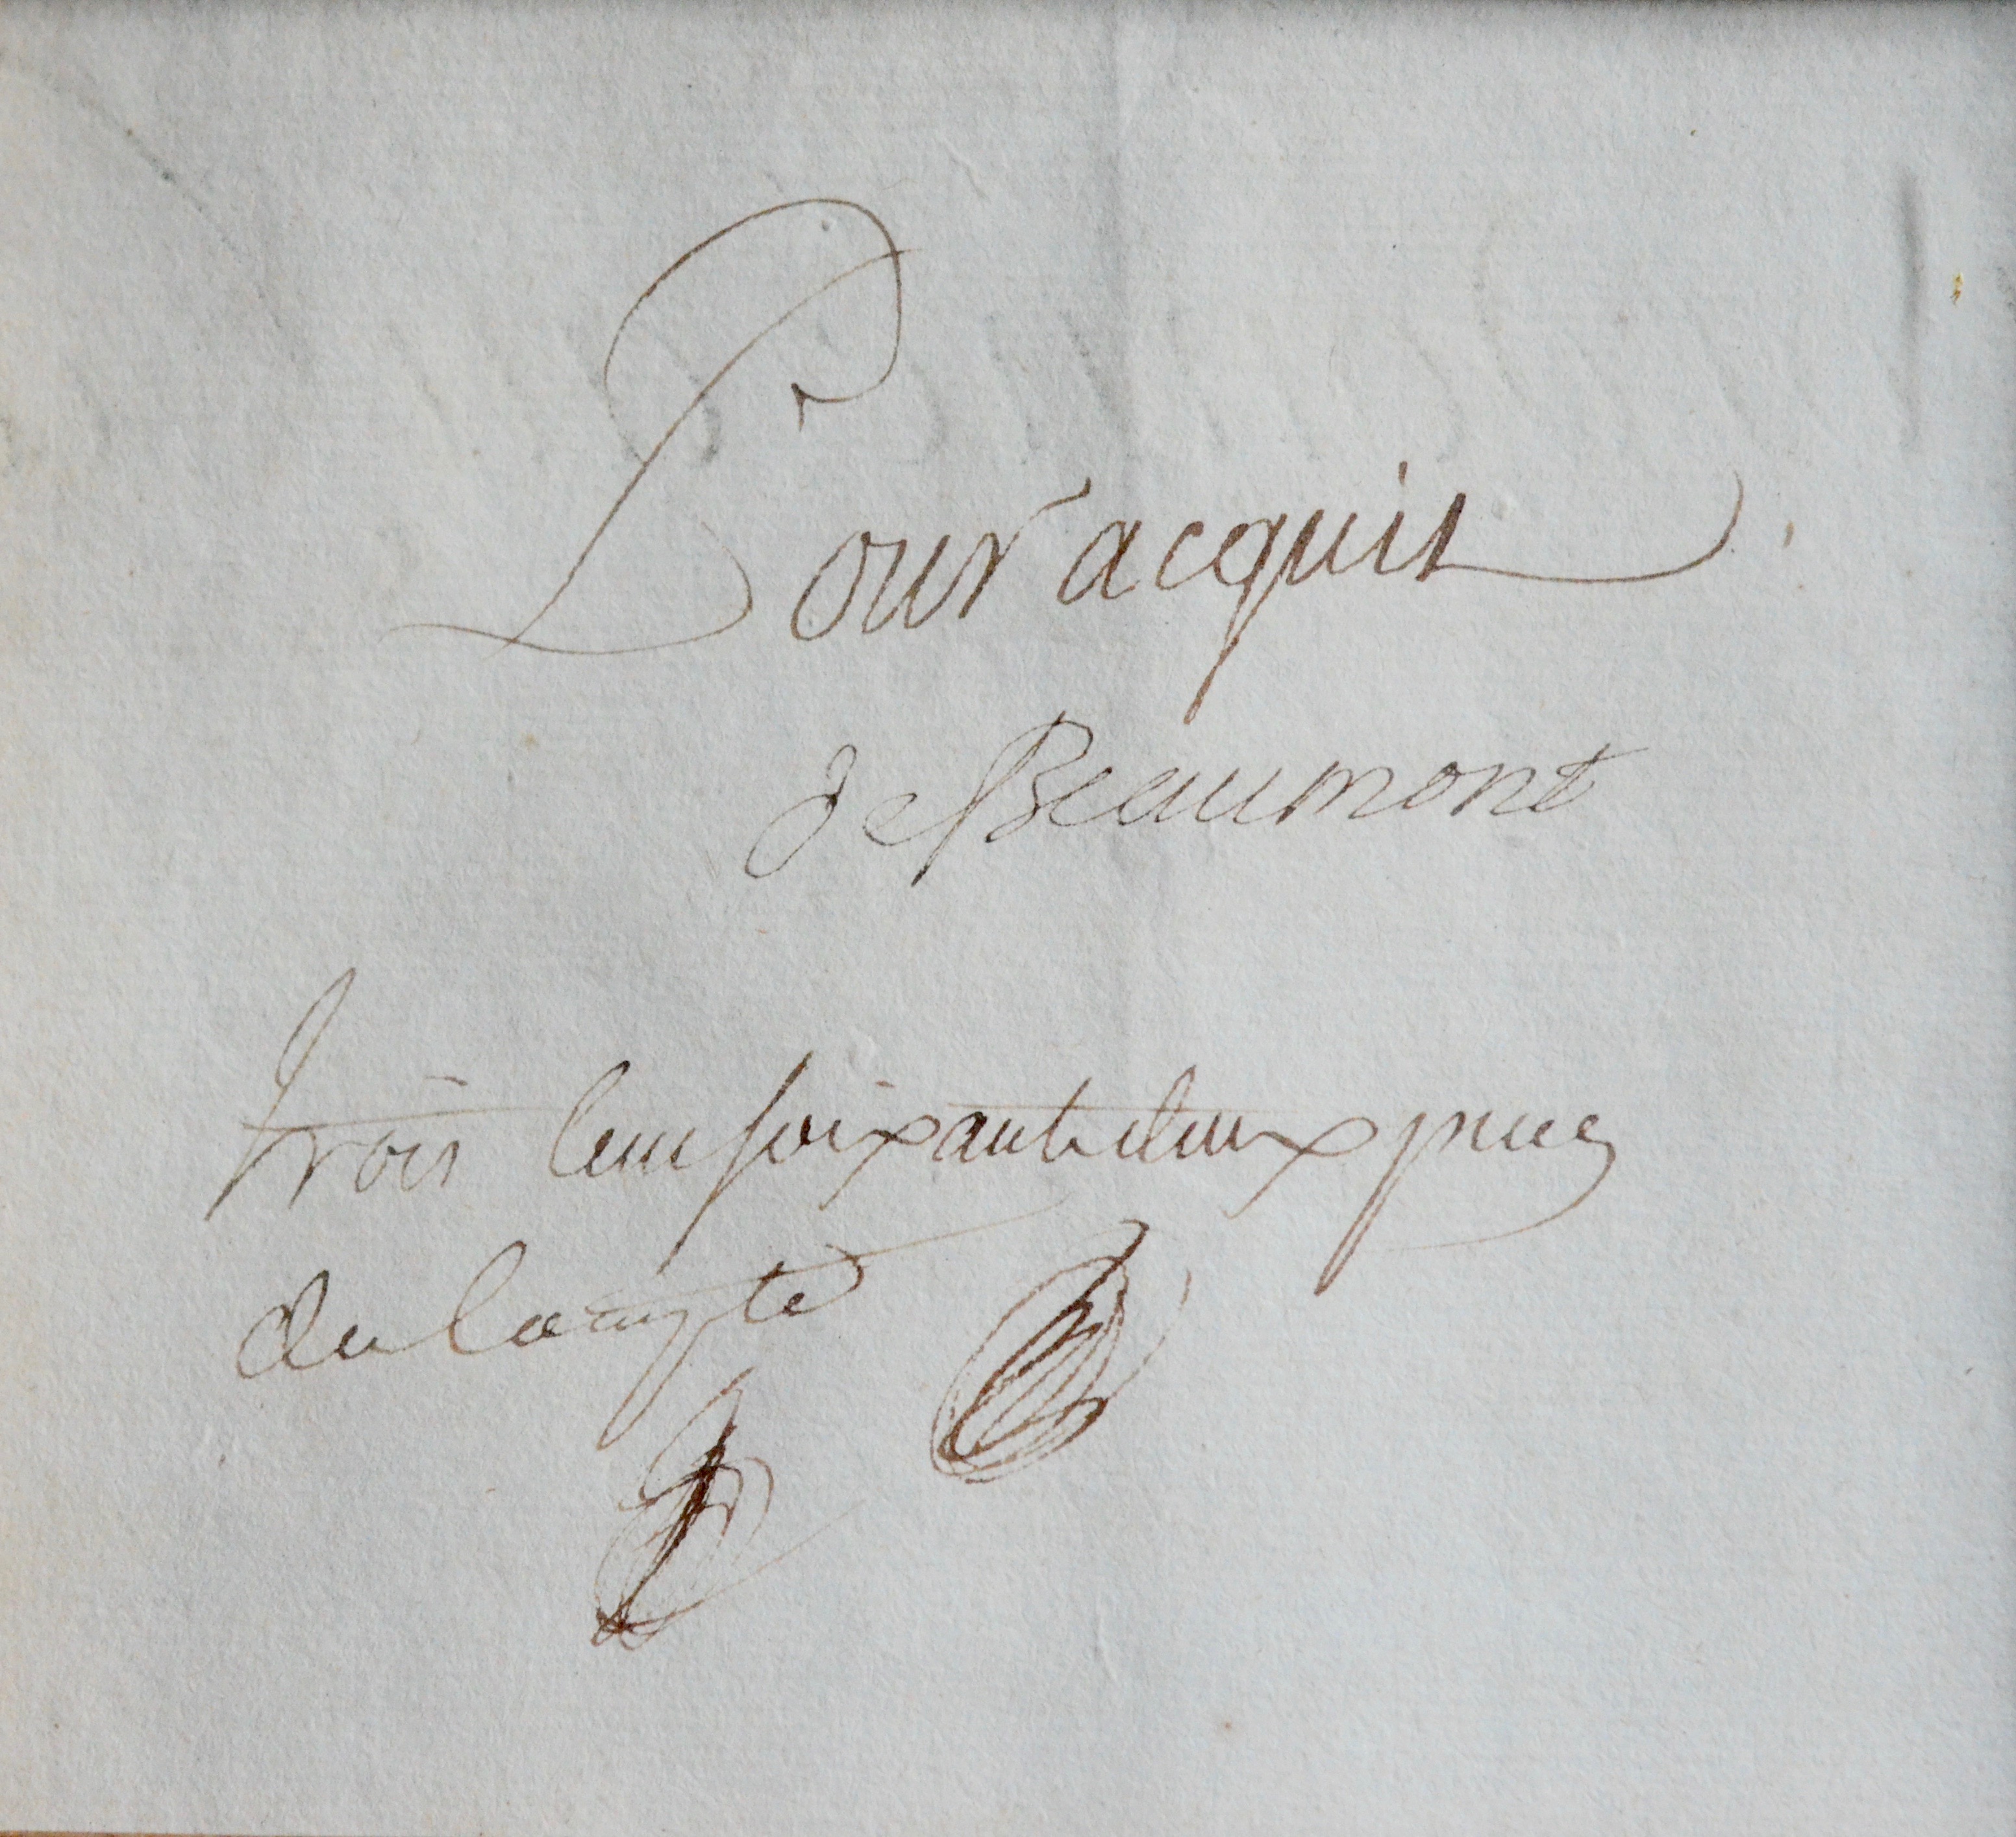 Pour acquis
de Beaumont
trois cent soixante deux piece
du compte